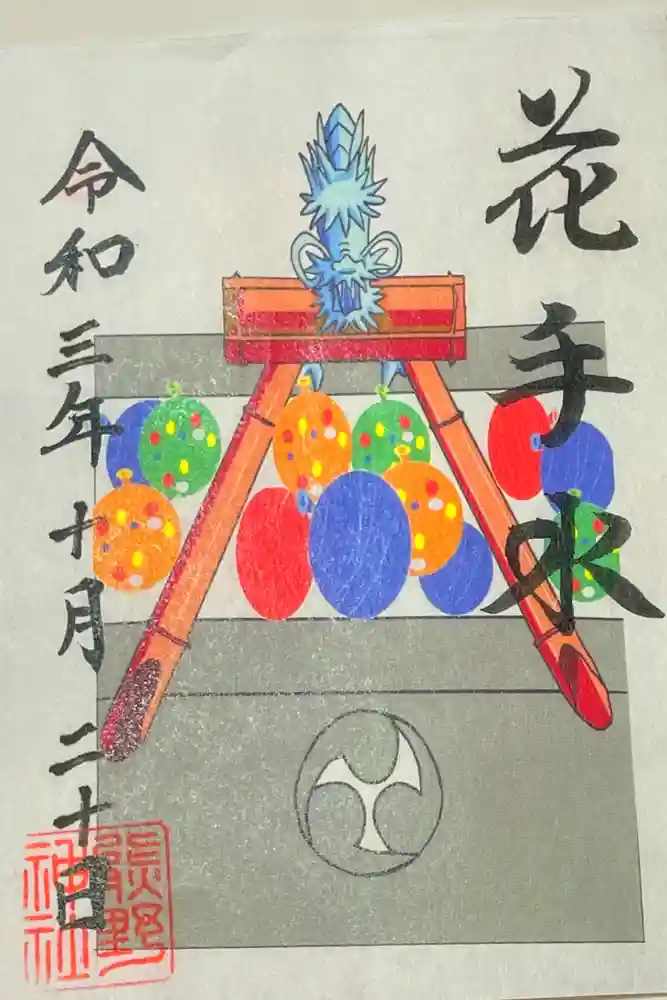 花手水
令和三年十月二十日
熊野
神社